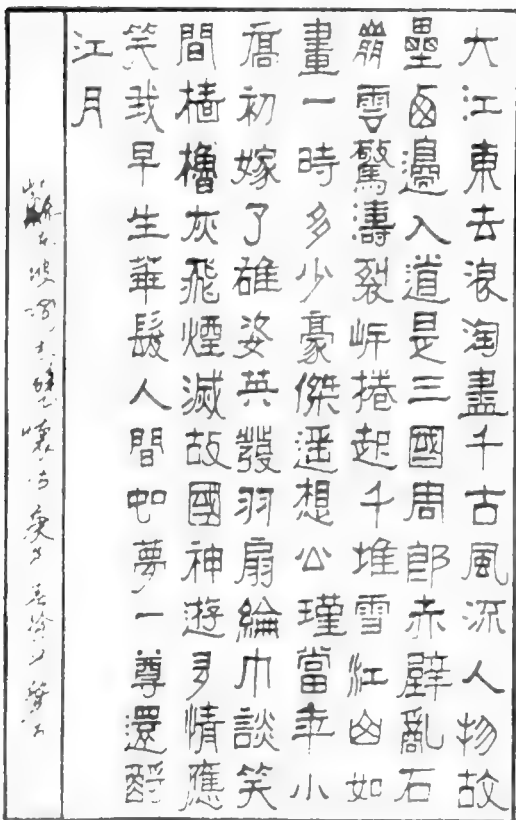 大江東去浪淘盡千古風流人物故
壘西邊人道是三國周郎赤壁亂石
崩雲驚濤裂岸捲起千堆雪江山如
畫一時多少豪傑遥想公瑾當年小
喬初嫁了雄姿英發羽扇綸巾談笑
間檣櫓灰飛煙滅故國神遊多情應
笑我早生華髮人間如夢一尊還酹
江月
蘇東坡懷古